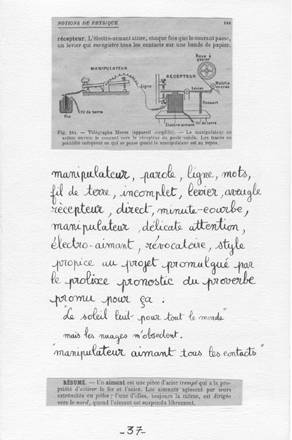 NOTIONS DE PHYSIQUE.
récepteur. L'électro-aimant attire, chaque fois que le courant passe,
un levier qui enregistre tous les contacts sur une bande de papier.
MANIPULATEUR
RÉCEPTEUR
Roue à papier
Ligne
Levier
Ressort
Fil de terre
Pile
Electro-aimant
Fil de terre
Télégraphe Morse (appareil simplifié). — Le manipulateur en
manipulateur, parole, ligne, mots,
fil de terre, incomplet, levier, aveugle
récepteur, direct, minute-courbe,
manipulateur, délicate attention,
électro-aimant, révocatoire, style
propice au projet promulgué par
le prolixe pronostic du proverbe
promu pour ça.
"Le soleil luit pour tout le monde"
mais les nuages m'obsèdent.
"manipulateur aimant tous les contacts"
RÉSUMÉ. — Un aimant est une pièce d'acier trempé qui a la pro-
priété d'attirer le fer et l'acier. Les aimants agissent par leurs
extrémités ou pôles : l'une d'elles, toujours la même, est dirigée
vers le nord, quand l'aimant est suspendu librement.
-37-